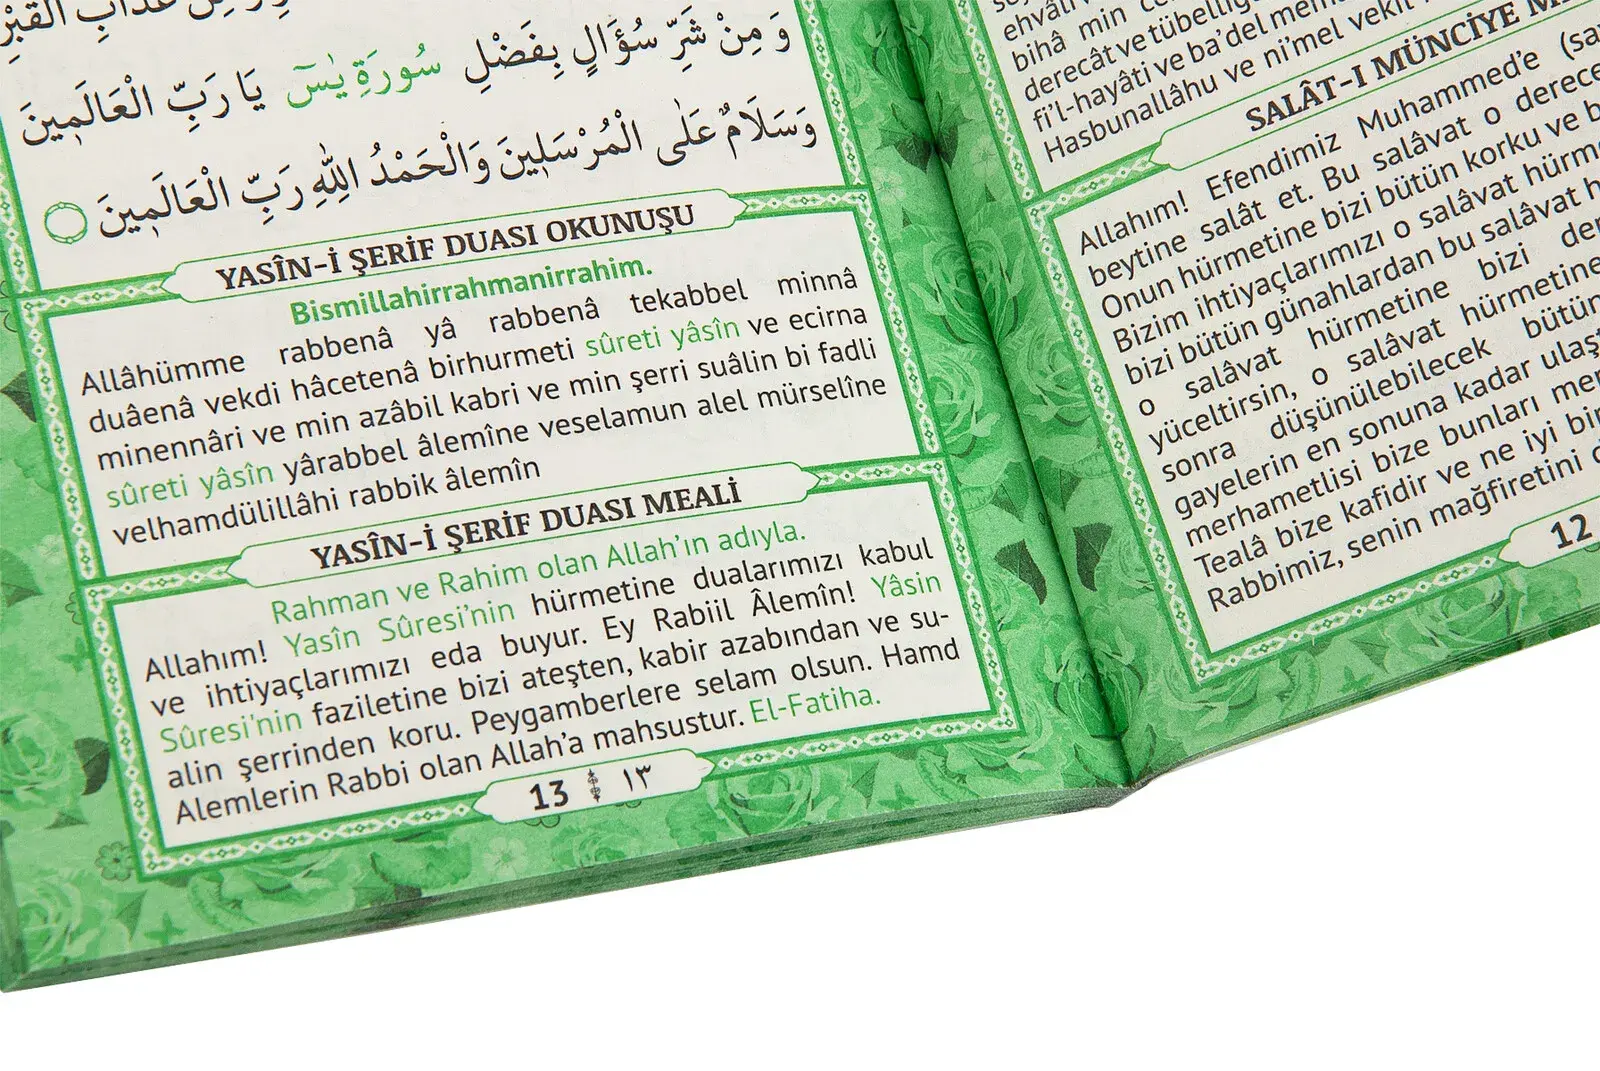 وَ مِنْ شَرِّ سُؤَالٍ بِفَضْلِ سُورَةِ يٰسٓ يَا رَبِّ الْعَالَمِينَ
وَسَلَامٌ عَلَى الْمُرْسَلِينَ وَالْحَمْدُ لِلّٰهِ رَبِّ الْعَالَمِينَ
YASÎN-İ ŞERİF DUASI OKUNUŞU
Bismillahirrahmanirrahim.
Allâhümme rabbenâ yâ rabbenâ tekabbel minnâ
duâenâ vekdi hâcetenâ birhurmeti sûreti yâsîn ve ecirna
minennâri ve min azâbil kabri ve min şerri suâlin bi fadli
sûreti yâsîn yârabbel âlemîne veselamun alel mürselîne
velhamdülillâhi rabbik âlemîn
YASÎN-İ ŞERİF DUASI MEALİ
Rahman ve Rahim olan Allah'ın adıyla.
Allahım! Yasîn Sûresi'nin hürmetine dualarımızı kabul
ve ihtiyaçlarımızı eda buyur. Ey Rabiil Âlemîn! Yâsin
Sûresi'nin faziletine bizi ateşten, kabir azabından ve su-
alin şerrinden koru. Peygamberlere selam olsun. Hamd
Alemlerin Rabbi olan Allah'a mahsustur. El-Fatiha.
13 ١٣
bihâ min
derecât ve
fi'l-hayâti ve ba'del
Hasbunallâhu ve ni'mel vekil
SALÂT-I MÜNCİYE
Allahım! Efendimiz Muhammed'e
beytine salât et. Bu salâvat o
Onun hürmetine bizi bütün korku ve
Bizim ihtiyaçlarımızı o salâvat
bizi bütün günahlardan bu salâvat
o salâvat hürmetine bizi
yüceltirsin, o salâvat hürmetine
sonra düşünülebilecek
gayelerin en sonuna kadar
merhametlisi bize bunları
Teala bize kafidir ve ne iyi bir
Rabbimiz, senin mağfiretini
12